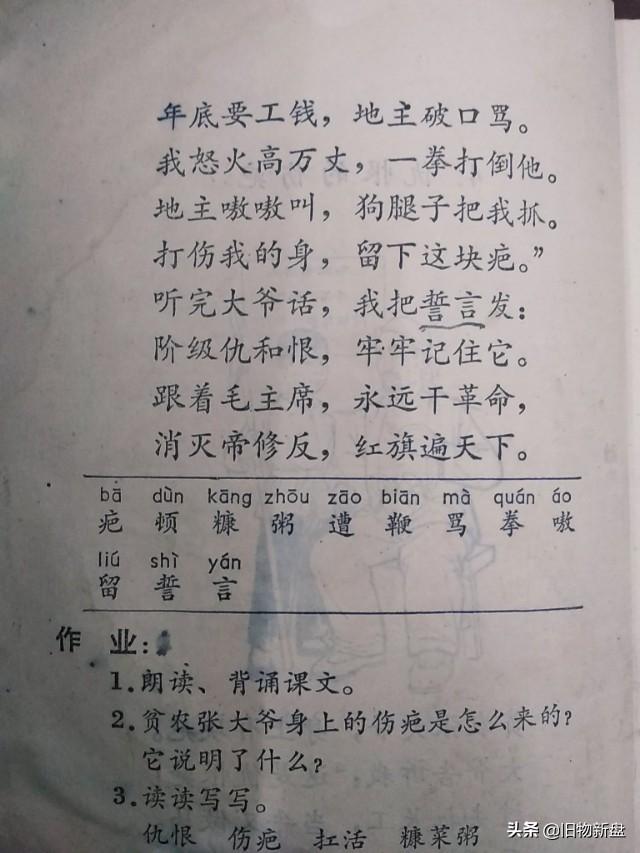 年底要工钱，地主破口骂。
我怒火高万丈，一拳打倒他。
地主嗷嗷叫，狗腿子把我抓。
打伤我的身，留下这块疤。”
听完大爷话，我把誓言发：
阶级仇和恨，牢牢记住它。
跟着毛主席，永远干革命，
消灭帝修反，红旗遍天下。
bā dùn kāng zhōu zāo biān mà quán áo
疤 顿 糠 粥 遭 鞭 骂 拳 嗷
liú shì yán
留 誓 言
作 业：
1.朗读、背诵课文。
2.贫农张大爷身上的伤疤是怎么来的？
它说明了什么？
3.读读写写。
仇恨 伤疤 扛活 糠菜粥
头条 @旧物新盘